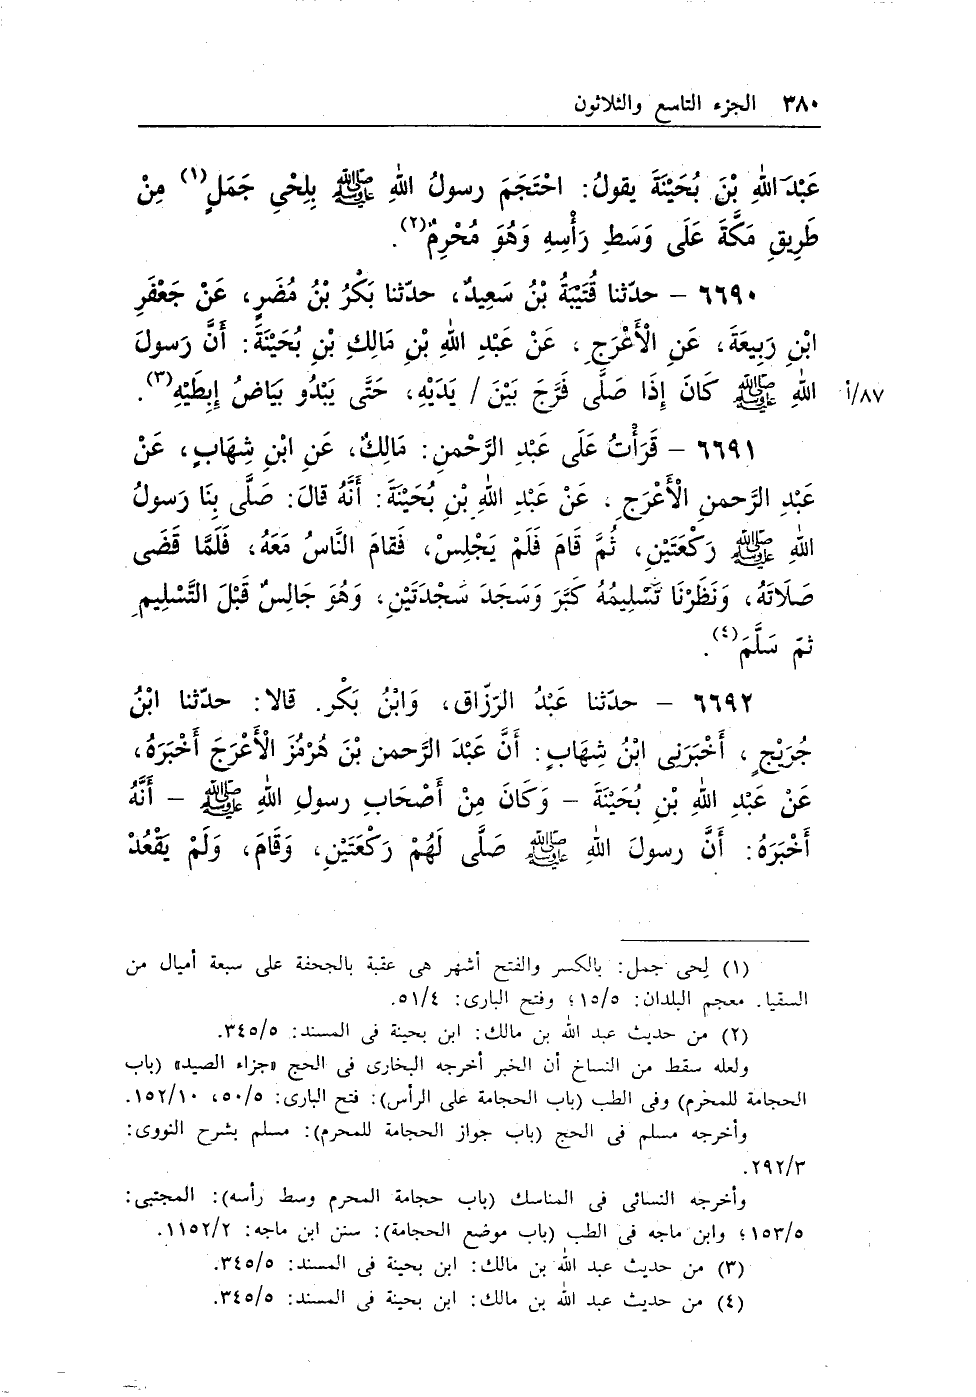 ٣٨٠ الجزء التاسع والثلاثون
عَبْدَ اللهِ بْنَ بُحَيْنَةَ يقولُ: احْتَجَمَ رسولُ اللهِ ﷺ بِلِحْىِ جَمَلٍ(١) مِنْ
طَرِيقِ مَكَّةَ عَلَى وَسَطِ رَأْسِهِ وَهُوَ مُحْرِمٌ(٢).
٦٦٩٠ - حدّثنا قُتَيْبَةُ بْنُ سَعِيدٌ، حدّثنا بَكْرُ بْنُ مُضَرٍ، عَنْ جَعْفَرِ
ابْنِ رَبِيعَةَ، عَنِ الْأَعْرَجِ، عَنْ عَبْدِ اللهِ بْنِ مَالِكِ بْنِ بُحَيْنَةَ: أَنَّ رَسولَ
٨٧/أ اللهِ ﷺ كَانَ إِذَا صَلَّى فَرَّجَ بَيْنَ / يَدَيْهِ، حَتَّى يَبْدُو بَيَاضُ إِبِطَيْهِ(٣).
٦٦٩١ - قَرَأْتُ عَلَى عَبْدِ الرَّحْمنِ: مَالِكٌ، عَنِ ابْنِ شِهَابٍ، عَنْ
عَبْدِ الرَّحمنِ الْأَعْرَجِ، عَنْ عَبْدِ اللهِ بْنِ بُحَيْنَةَ: أَنَّهُ قالَ: صَلَّى بِنَا رَسولُ
اللهِ ﷺ رَكْعَتَيْنِ، ثُمَّ قَامَ فَلَمْ يَجْلِسْ، فَقامَ النَّاسُ مَعَهُ، فَلَمَّا قَضَى
صَلَاتَهُ، وَنَظَرْنَا تَسْلِيمُهُ كَبَّرَ وَسَجَدَ سَجْدَتَيْنِ، وَهُوَ جَالِسٌ قَبْلَ التَّسْلِيمِ
ثمَ سَلَّمَ(٤).
٦٦٩٢ - حدّثنا عَبْدُ الرّزّاق، وَابْنُ بَكْر. قالا: حدّثنا ابْنُ
جُرَيْجٍ، أَخْبَرَنِى ابْنُ شِهَابٍ: أَنَّ عَبْدَ الرَّحمن بْنَ هُرْمُزَ الْأَعْرَجَ أَخْبَرَهُ،
عَنْ عَبْدِ اللهِ بْنِ بُحَيْنَةَ - وَكَانَ مِنْ أَصْحَابِ رسولِ اللهِ ﷺ - أَنَّهُ
أَخْبَرَهُ: أَنَّ رسولَ اللهِ ﷺ صَلَّى لَهُمْ رَكْعَتَيْنِ، وَقَامَ، وَلَمْ يَقْعُدْ
(١) لِحى جمل: بالكسر والفتح أشهر هى عقبة بالجحفة على سبعة أميال من
السقيا. معجم البلدان: ١٥/٥؛ وفتح البارى: ٥١/٤.
(٢) من حديث عبد الله بن مالك: ابن بحينة فى المسند: ٣٤٥/٥.
ولعله سقط من النساخ أن الخبر أخرجه البخارى فى الحج «جزاء الصيد» (باب
الحجامة للمخرم) وفى الطب (باب الحجامة على الرأس): فتح البارى: ٥٠/٥، ١٥٢/١٠.
وأخرجه مسلم فى الحج (باب جواز الحجامة للمحرم): مسلم بشرح النووى:
٢٩٢/٣.
وأخرجه النسائى فى المناسك (باب حجامة المحرم وسط رأسه): المجتبى:
١٥٣/٥؛ وابن ماجه فى الطب (باب موضع الحجامة): سنن ابن ماجه: ١١٥٢/٢.
(٣) من حديث عبد الله بن مالك: ابن بحينة فى المسند: ٣٤٥/٥.
(٤) من حديث عبد الله بن مالك: ابن بحينة فى المسند: ٣٤٥/٥.